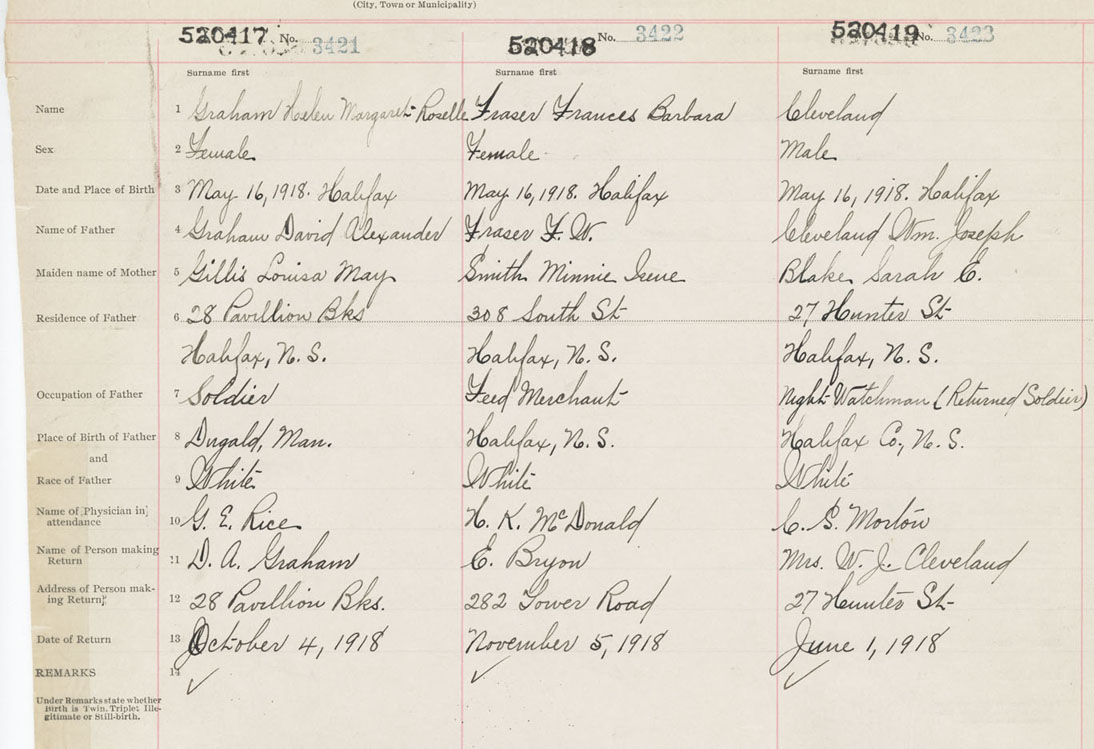 (City, Town or Municipality)
520417 No. 3421 520418 No. 3422 520419 No. 3423
Surname first Surname first Surname first
Name 1 Graham Helen Margaret Roselle Fraser Frances Barbara Cleveland
Sex 2 Female Female Male
Date and Place of Birth 3 May 16, 1918. Halifax May 16, 1918. Halifax May 16, 1918. Halifax
Name of Father 4 Graham David Alexander Fraser F. W. Cleveland Wm. Joseph
Maiden name of Mother 5 Gillis Louisa May Smith Minnie Irene Blake Sarah E.
Residence of Father 6 28 Pavillion Bks 308 South St 27 Hunter St
Halifax, N. S. Halifax, N. S. Halifax, N. S.
Occupation of Father 7 Soldier Feed Merchant Night Watchman (Returned Soldier)
Place of Birth of Father 8 Dugald, Man. Halifax, N. S. Halifax Co., N. S.
and
Race of Father 9 White White White
Name of Physician in attendance 10 G. E. Rice H. K. McDonald C. S. Morton
Name of Person making Return 11 D. A. Graham E. Bryon Mrs. W. J. Cleveland
Address of Person making Return 12 28 Pavillion Bks. 282 Tower Road 27 Hunter St
Date of Return 13 October 4, 1918 November 5, 1918 June 1, 1918
REMARKS 14
Under Remarks state whether
Birth is Twin, Triplet Ille-
gitimate or Still-birth.